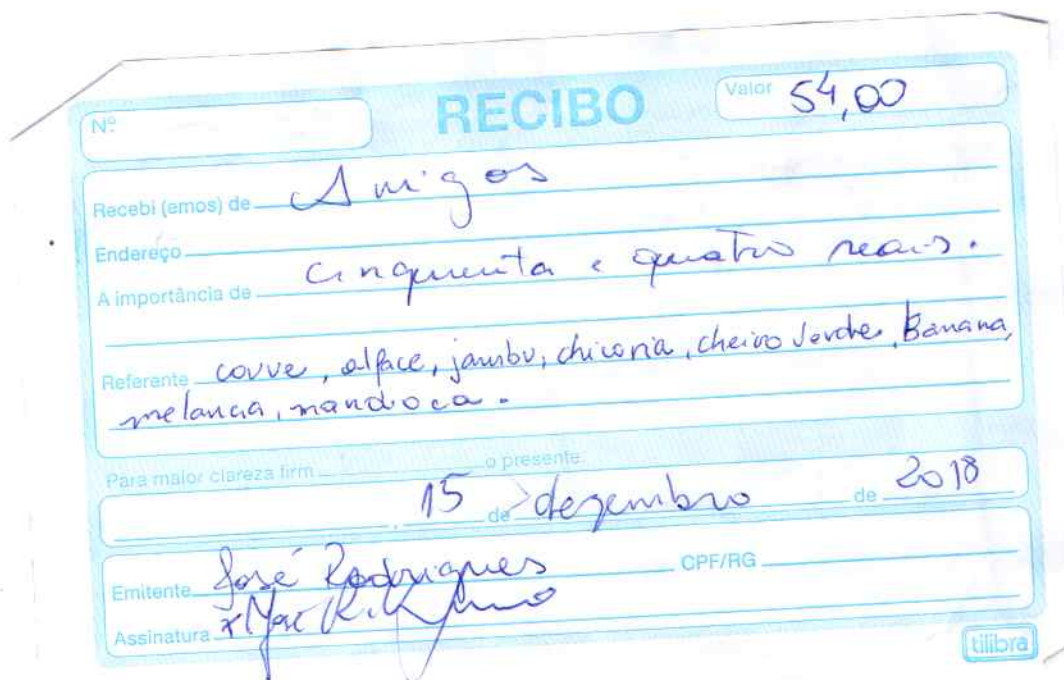 Nº RECIBO Valor 54,00
Recebi (emos) de Amigos
Endereço
A importância de cinquenta e quatro reais.
Referente couve, alface, jambu, chicoria, cheiro verde, Banana,
melancia, mandioca.
Para maior clareza firm o presente.
, 15 de dezembro de 2018
Emitente José Rodrigues CPF/RG
Assinatura
tilibra